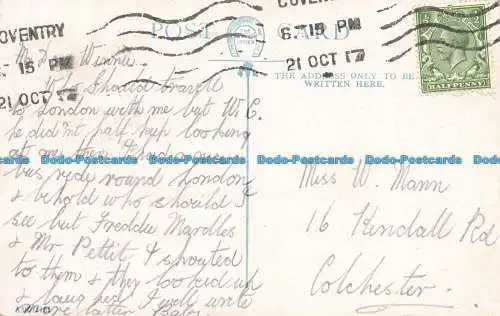 COVENTRY
6.15 PM
21 OCT 17
POST CARD
COVENTRY
6.15 PM
21 OCT 17
HALFPENNY
THE ADDRESS ONLY TO BE
WRITTEN HERE.
Winnie
Should travell
to London with me but W. C.
he did'nt half keep looking
at me then I had a
bus ride round London
& behold who should I
see but Freddie Mardles
& Mr Pettit I shouted
to them & they looked up
& laughed I will write
later
Miss W. Mann
16 Kendall Rd
Colchester.
Dodo-Postcards Dodo-Postcards Dodo-Postcards Dodo-Postcards Dodo-Postcards